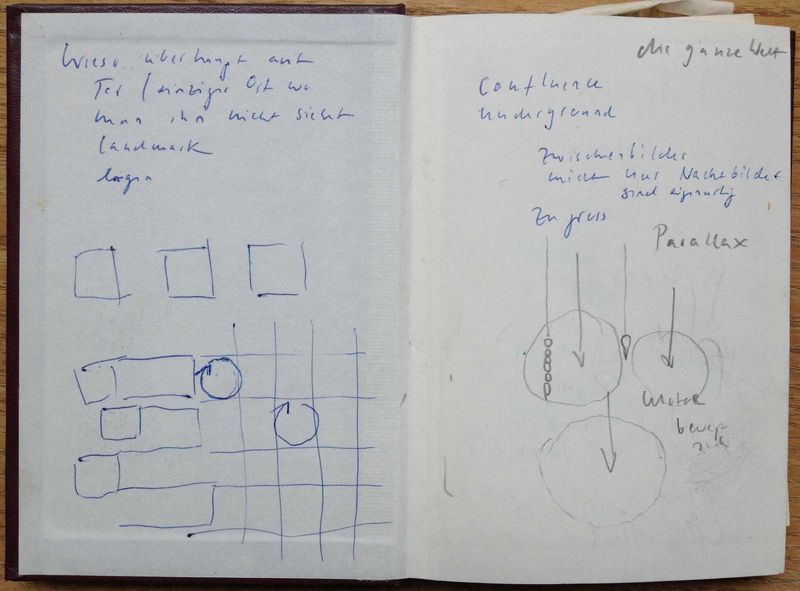 Wieso überhaupt auf
Tes / einzige Ort wo
man ihn nicht sieht
landmark
die ganze Welt
Confluence
underground
Zwischenbilder
nicht nur Nachtbilder
sind eigenartig
Zu gross
Parallax
Motor
bewegt
sich